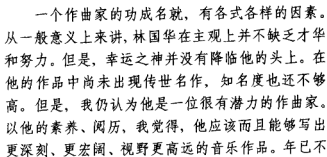 一个作曲家的功成名就，有各式各样的因素。
从一般意义上来讲，林国华在主观上并不缺乏才华
和努力。但是，幸运之神并没有降临他的头上。在
他的作品中尚未出现传世名作，知名度也还不够
高。但是，我仍认为他是一位很有潜力的作曲家。
以他的素养、阅历，我觉得，他应该而且能够写出
更深刻、更宏阔、视野更高远的音乐作品。年已不